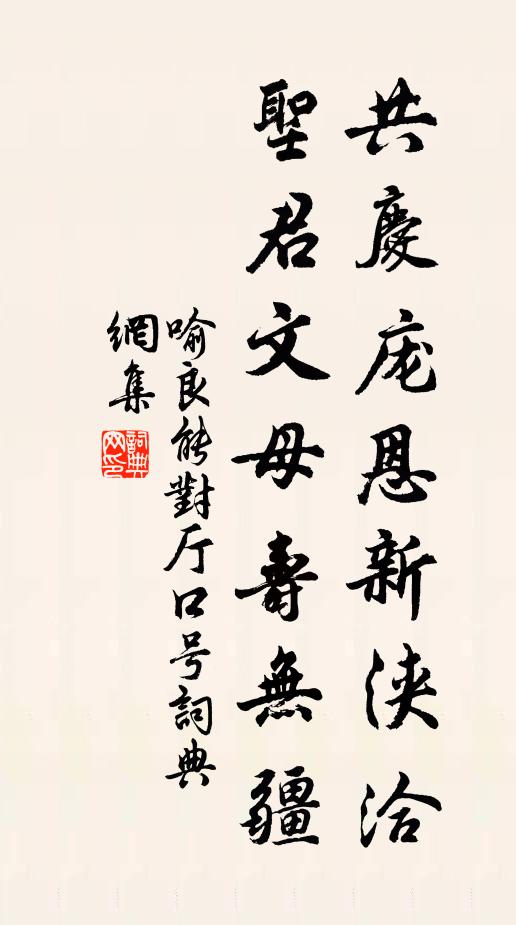 共慶庞恩新浹洽
聖君文母壽無疆
喻良能對厅口号詞典
網集
詞典网印